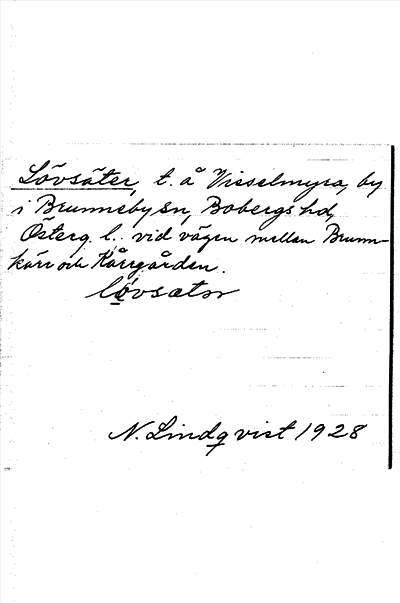 Lövsäter, t. å Visselmyra, by
i Brunneby sn, Bobergs hd,
Österg. l.. vid vägen mellan Brunn-
kärr och Kärrgården.
lövsætər
N. Lindqvist 1928